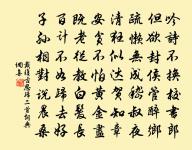 吟詩不換校書郎
但欲封侯管醉鄉
疏懶無成嵇叔夜
清狂似達賀知章
安貧不怕黃金盡
既老從教白髮長
百計不如歸去好
子孫相對說農桑
戴復古思歸二首詞典
網集